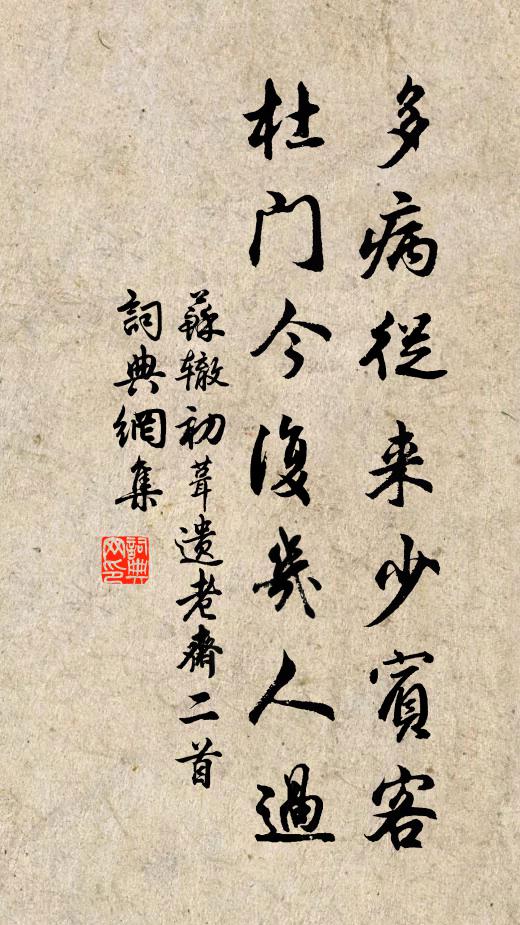 多病從来少賓客
杜門今復幾人過
蘇辙初葺遗老齋二首
詞典網集
詞典網印